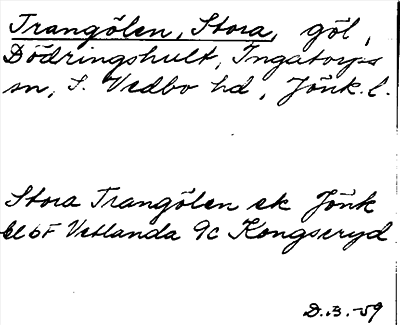 Trangölen, Stora, göl,
Dödringshult, Ingatorps
sn, S. Vedbo hd, Jönk. l.
Stora Trangölen ek Jönk
bl 6F Vetlanda 9c Kongseryd
D. B. -59